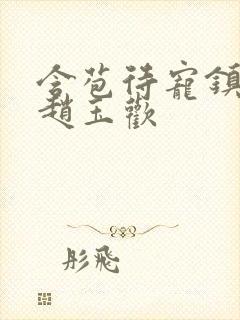 含苞待寵鎮
趙玉歡
彤飛